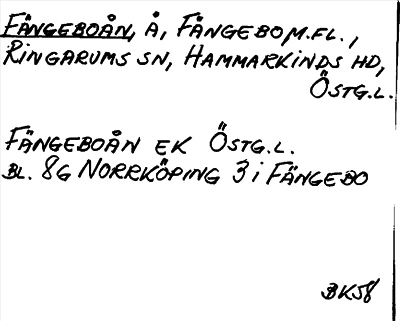 FÅNGEBOÅN, Å, FÅNGEBO M.FL.,
RINGARUMS SN, HAMMARKINDS HD,
ÖSTG.L.
FÄNGEBOÅN EK ÖSTG.L.
BL. 8G NORRKÖPING 3 i FÄNGEBO
BK58